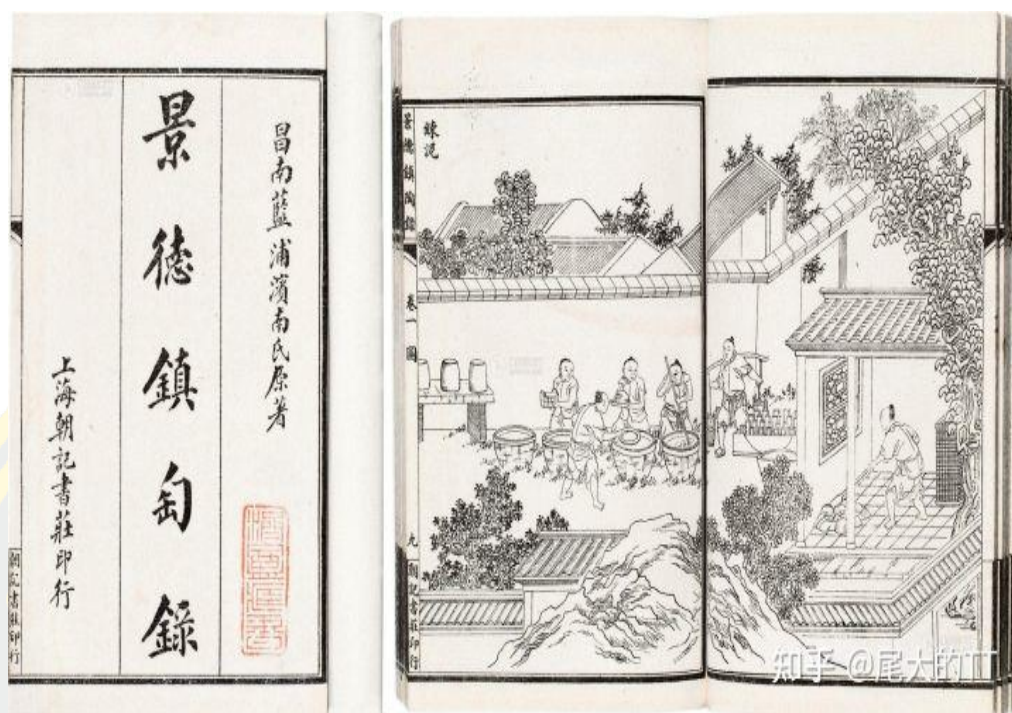 昌南藍浦濱南氏原著
景徳鎮匋錄
上海朝記書莊印行
朝記書莊印行
練泥
景德鎮陶錄
卷一圖
九
朝記書莊印行
知乎 @尾大的TT